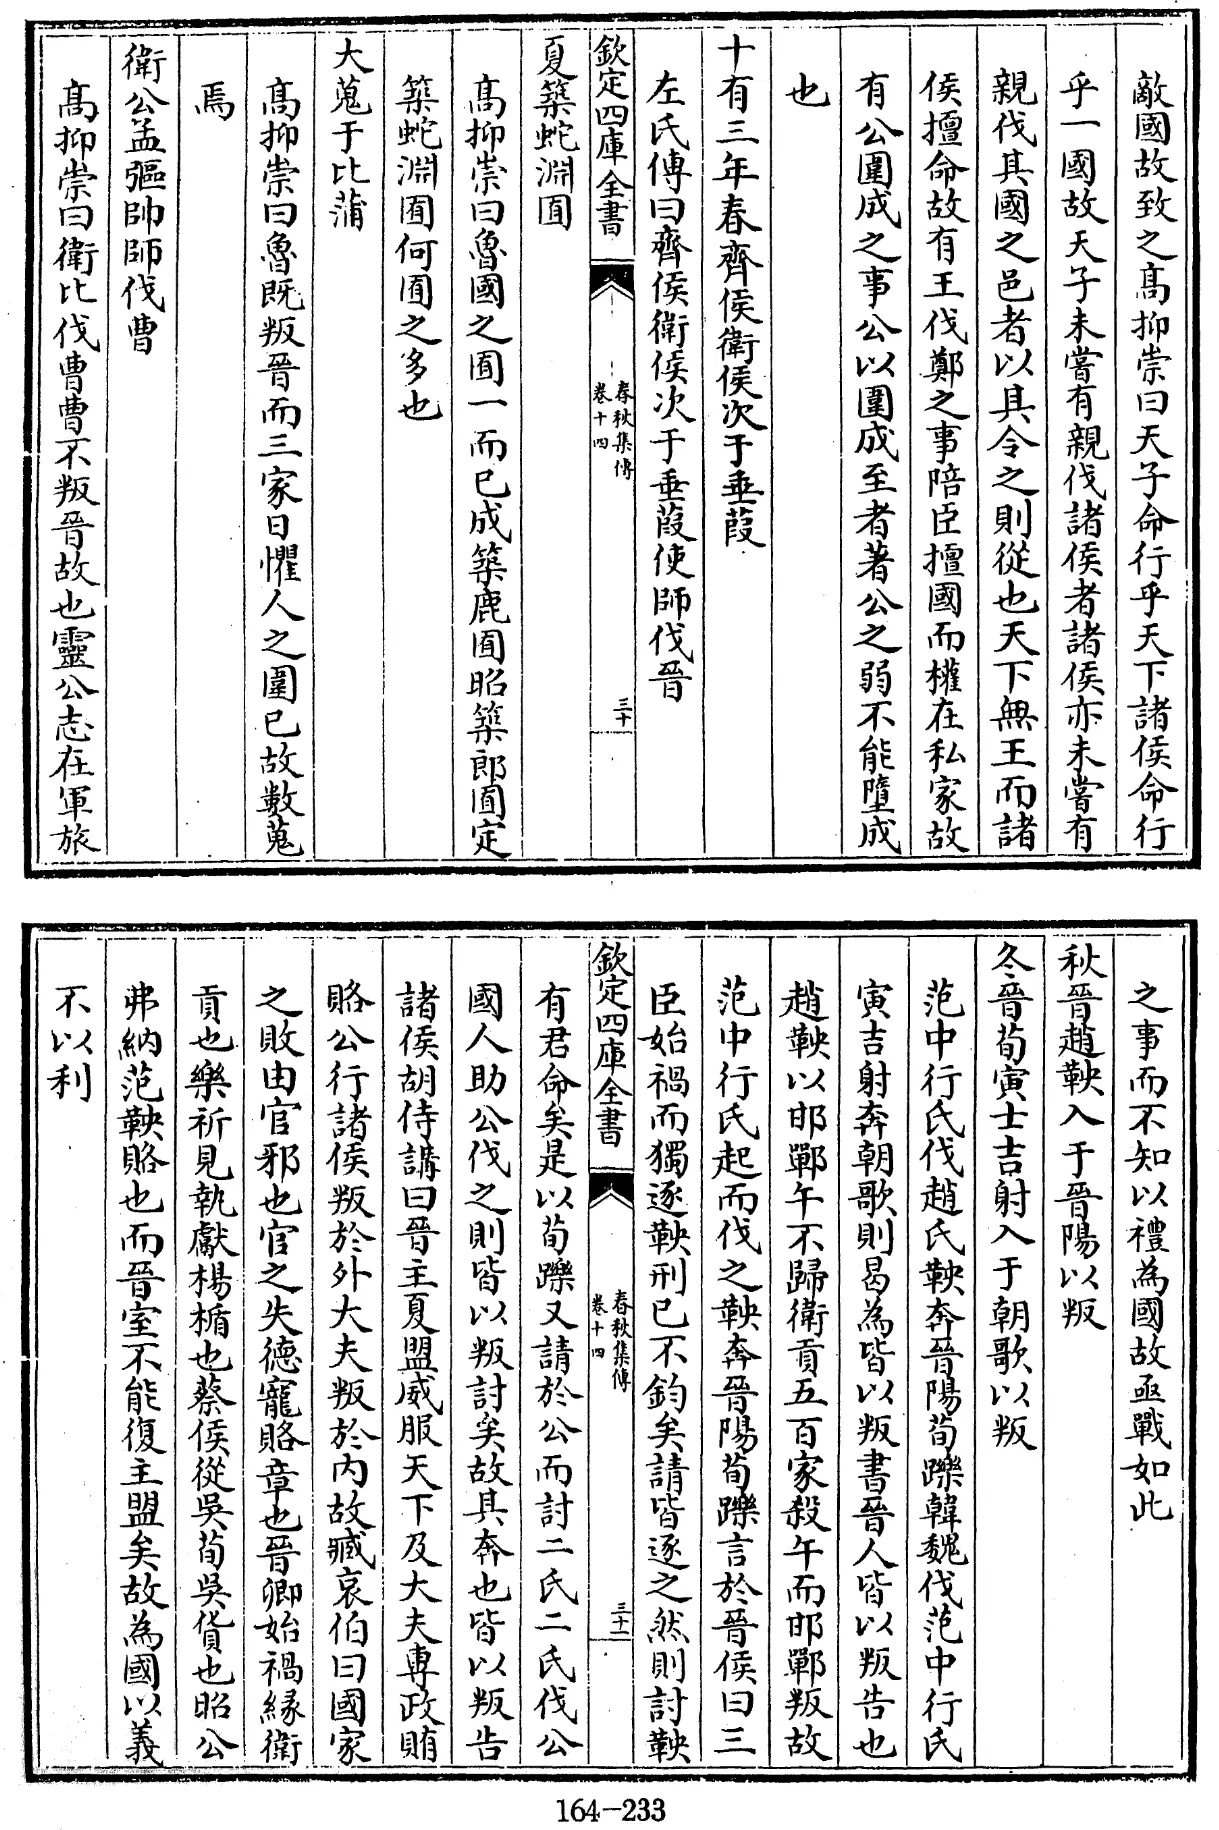 敵國故致之髙抑崇曰天子命行乎天下諸侯命行
乎一國故天子未嘗有親伐諸侯者諸侯亦未嘗有
親伐其國之邑者以具令之則從也天下無王而諸
侯擅命故有王伐鄭之事陪臣擅國而權在私家故
有公圍成之事公以圍成至者著公之弱不能墮成
也
十有三年春齊侯衛侯次于垂葭
左氏傳曰齊侯衛侯次于垂葭使師伐晉
欽定四庫全書
春秋集傳
卷十四
三十
夏築蛇淵囿
髙抑崇曰魯國之囿一而已成築鹿囿昭築郎囿定
築蛇淵囿何囿之多也
大蒐于比蒲
髙抑崇曰魯既叛晉而三家日懼人之圍已故數蒐
焉
衛公孟彄帥師伐曹
髙抑崇曰衛比伐曹曹不叛晉故也靈公志在軍旅
之事而不知以禮為國故亟戰如此
秋晉趙鞅入于晉陽以叛
冬晉荀寅士吉射入于朝歌以叛
范中行氏伐趙氏鞅奔晉陽荀躒韓魏伐范中行氏
寅吉射奔朝歌則曷為皆以叛書晉人皆以叛告也
趙鞅以邯鄲午不歸衛貢五百家殺午而邯鄲叛故
范中行氏起而伐之鞅奔晉陽荀躒言於晉侯曰三
臣始禍而獨逐鞅刑已不鈞矣請皆逐之然則討鞅
欽定四庫全書
春秋集傳
卷十四
三十一
有君命矣是以荀躒又請於公而討二氏二氏伐公
國人助公伐之則皆以叛討矣故其奔也皆以叛告
諸侯胡侍講曰晉主夏盟威服天下及大夫專政賄
賂公行諸侯叛於外大夫叛於内故臧哀伯曰國家
之敗由官邪也官之失德寵賂章也晉卿始禍緣衛
貢也樂祈見執獻楊楯也蔡侯從吳荀吳貨也昭公
弗納范鞅賂也而晉室不能復主盟矣故為國以義
不以利
164-233